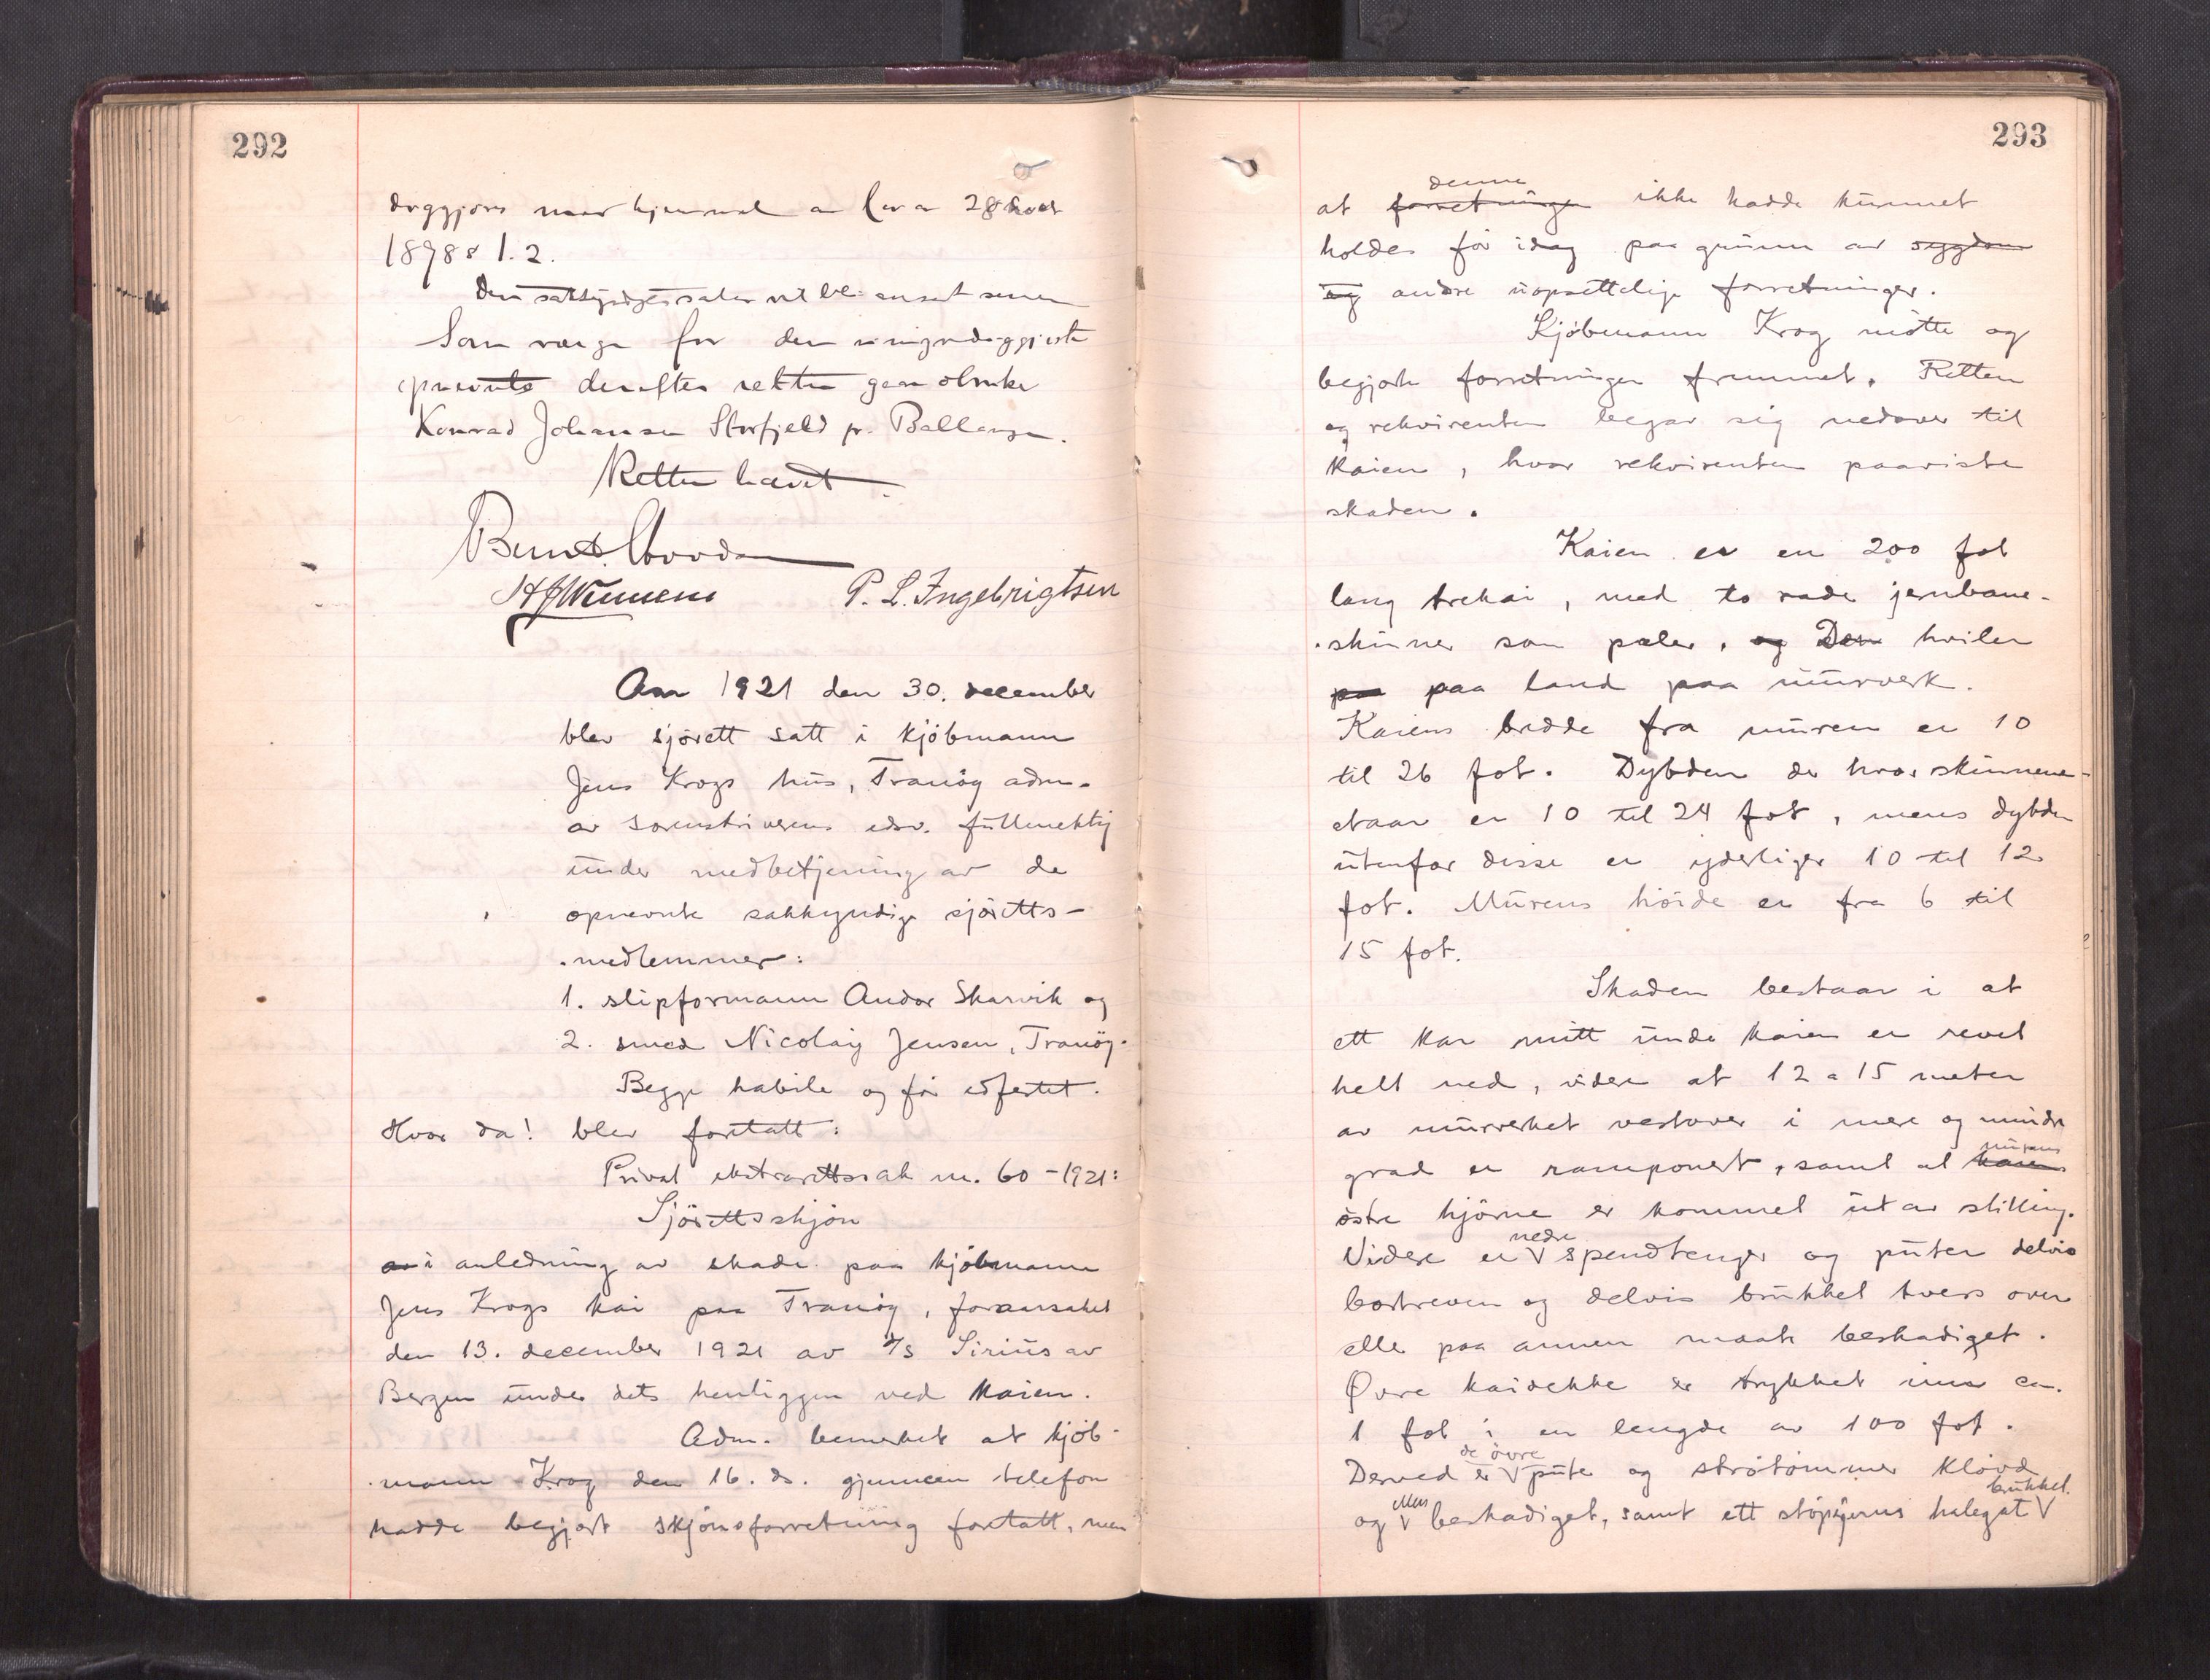 292
dyggjøres med hjemmel a lov a 28 Novbr
1898 § 1. 2.
Den sakkyndiges salær vil bli anset senere
Som verge for den umyndiggjorte
opnevnte derefter retten gaardbruker
Konrad Johansen Storfjeld pr. Ballangen.
Retten hævet.
P. L. Ingebrigtsen
Aar 1921 den 30. december
blev sjörett satt i kjöbmann
Jens Krogs hus, Tranöy adm.
av sorenskriverens edsv. fullmektig
under medbetjening av de
opnevnte sakkyndige sjöretts-
-medlemmer:
1. slipformann Andor Skarvik og
2. smed Nicolay Jensen, Tranöy.
Begge habile og för edfestet.
Hvor da! blev foretatt:
Privat ekstrarettssak nr. 60 - 1921:
Sjörettsskjön
av i anledning av skade paa kjöbmann
Jens Krogs kai paa Tranöy, foraarsaket
den 13. december 1921 av d/s Sirius av
Bergen under dets henliggen ved kaien.
Adm. bemerket at kjöb-
-mann Krog den 16. ds. gjennem telefon
hadde begjært skjönsforretning foretatt, men
293
denne
at forretningen ikke hadde kunnet
holdes för idag paa grunn av sygdom
og andre uopsettelige forretninger.
Kjöbmann Krog mötte og
begjærte forretningen fremmet. Retten
og rekvirenten begav sig nedover til
kaien, hvor rekvirenten paaviste
skaden.
Kaien er en 200 fot
lang trekai, med to rader jernbane-
-skinner som pæler, og Den hviler
paa paa land paa murverk.
Kaiens bredde fra muren er 10
til 26 fot. Dybden der hvor skinnene
staar er 10 til 24 fot, mens dybden
utenfor disse er yderligere 10 til 12
fot. Murens höide er fra 6 til
15 fot.
Skaden bestaar i at
ett kar mitt under kaien er revet
helt ned, videre at 12 a 15 meter
av murverket vestover i mere og mindre
grad er ramponert, samt at kaiens
murens
östre hjörne er kommet ut av stilling.
nedre
Videre er V spendtenger og puter delvis
bortreven og delvis brukket tvers over
eller paa annen maate beskadiget.
Övre kaidekke er trykket inn ca.
1 fot i en lengde av 100 fot.
de övre
Derved er V puter og strötömmer klövd
brukket.
og V beskadiget, samt ett stöpejerns halegat V